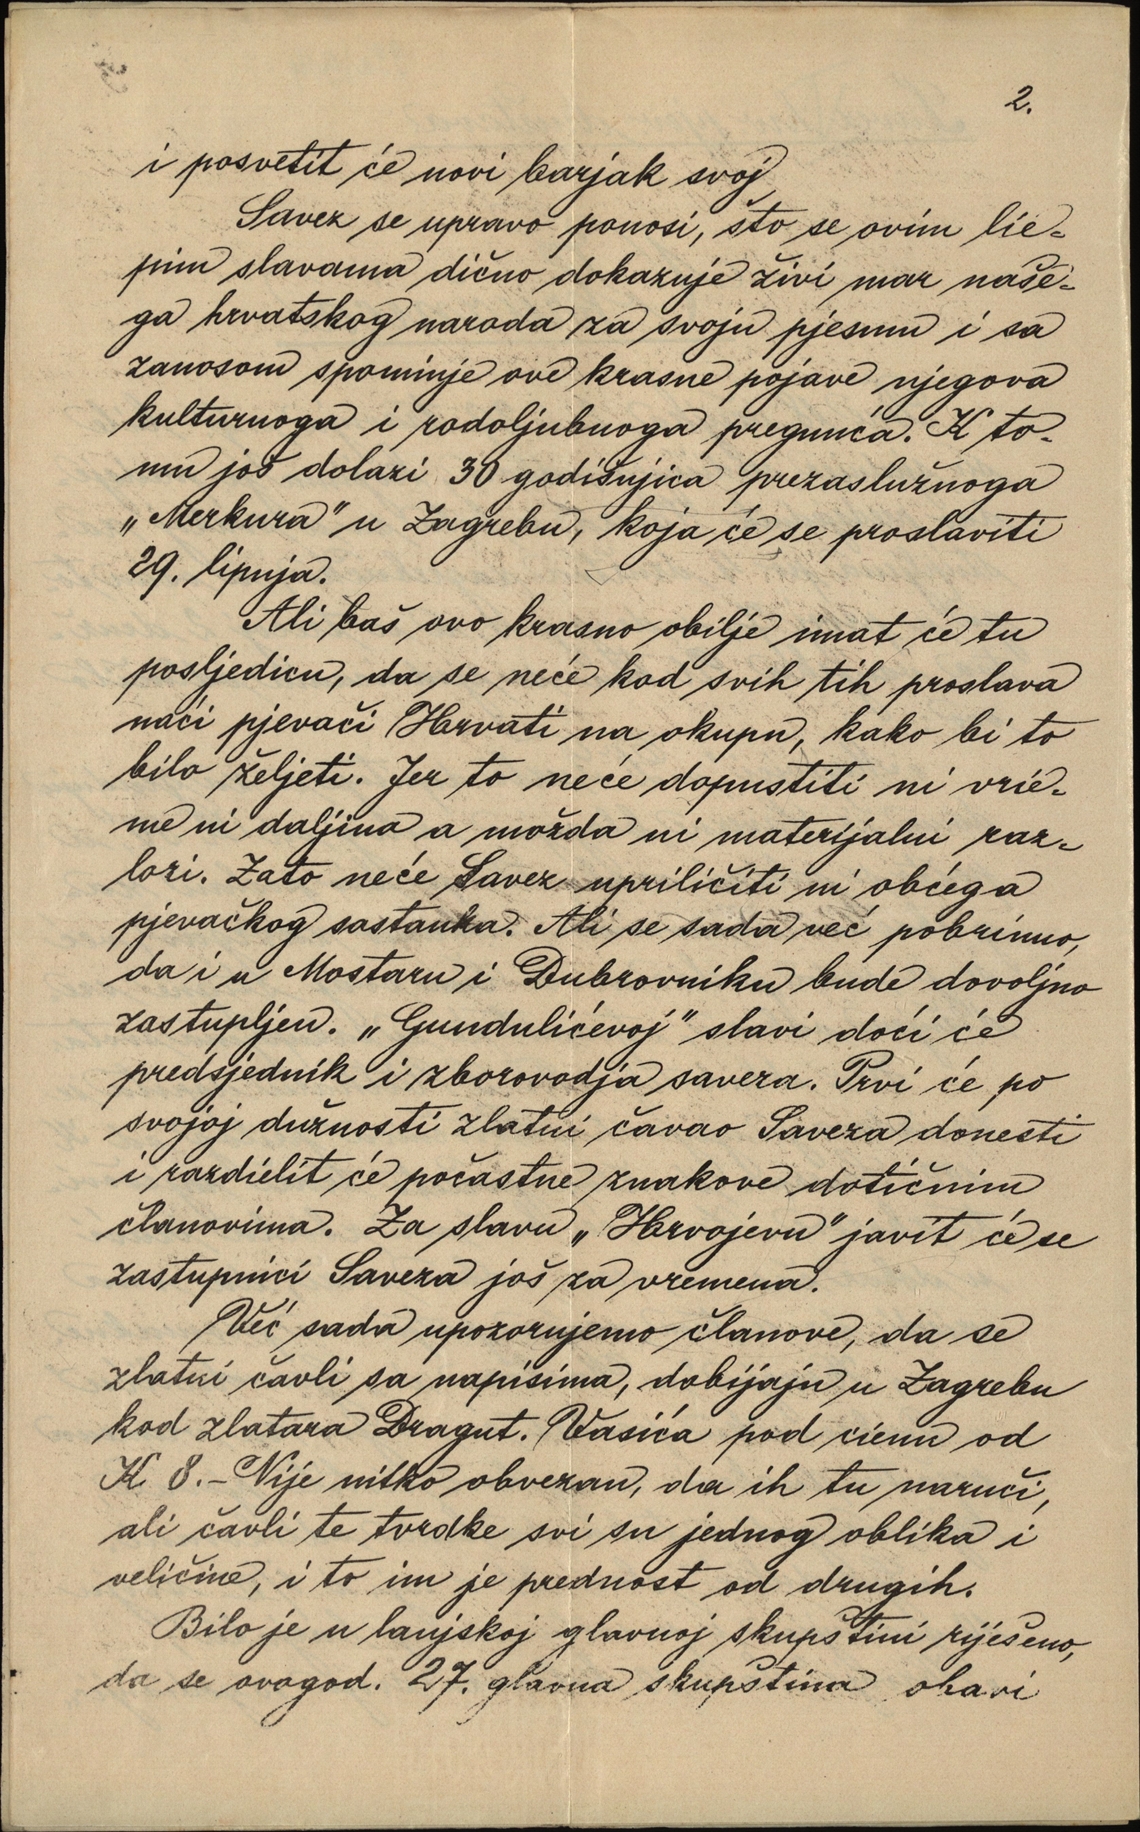 2.
i posvetit će novi barjak svoj
Savez se upravo ponosi, što se ovim lie-
pim slavama dično dokazuje živi mar naše-
ga hrvatskog naroda za svoju pjesmu i sa
zanosom spominje ove krasne pojave njegova
kulturnoga i rodoljubnoga pregnuća. K to-
mu još dolazi 30 godišnjica prezaslužnoga
„Merkura" u Zagrebu, koja će se proslaviti
29. lipnja.
Ali baš ovo krasno obilje imat će tu
posljedicu, da se neće kod svih tih proslava
naći pjevači Hrvati na okupu, kako bi to
bilo željeti. Jer to neće dopustiti ni vrie-
me ni daljina a možda ni materijalni raz-
lozi. Zato neće Savez upriličiti ni obćega
pjevačkog sastanka. Ali se sada već pobrinuo,
da i u Mostaru i Dubrovniku bude dovoljno
zastupljen. „Gundulićevoj" slavi doći će
predsjednik i zborovodja saveza. Prvi će po
svojoj dužnosti zlatni čavao Saveza donesti
i razdielit će počastne znakove dotičnim
članovima. Za slavu „Hrvojevu" javit će se
zastupnici Saveza još za vremena.
Već sada upozorujemo članove, da se
zlatni čavli sa napisima, dobijaju u Zagrebu
kod zlatara Dragut. Vasića pod cienu od
K 8.- Nije nitko obvezan, da ih tu naruči,
ali čavli te tvrdke svi su jednog oblika i
veličine, i to im je prednost od drugih.
Bilo je u lanjskoj glavnoj skupštini riješeno,
da se ovogod. 27. glavna skupština obavi